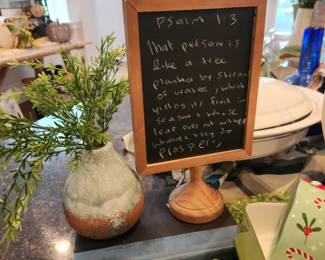 Psalm 1:3
That person is
like a tree
planted by streams
of water, which
yields its fruit in
season & whose
leaf does not wither
whatever they do
prospers,